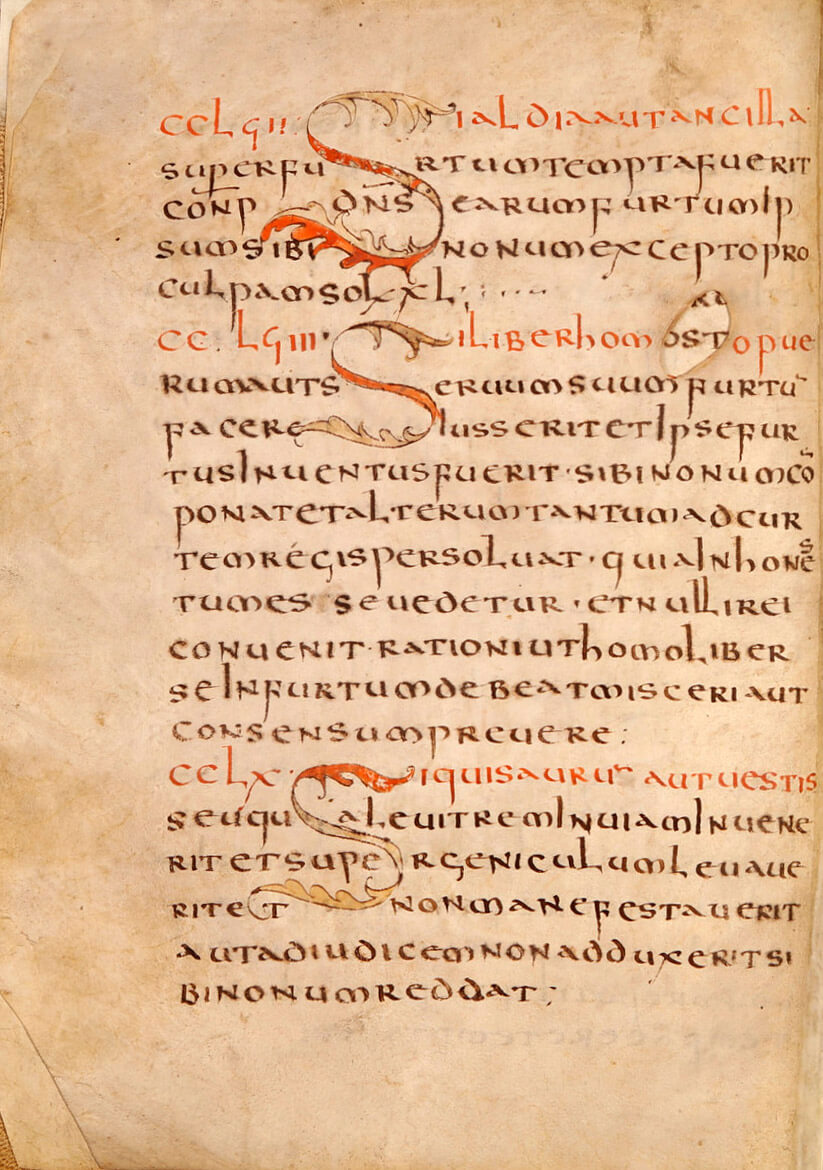 CCLϛII Si aldia aut ancilla
super furtum temptafuerit
conp dn̄s earum furtum ip
sum sibi nonum excepto pro
culpam sol xl;
CC. LϛIII· Si liber hom ost o pue
rum aut seruum suum furtū
facere iusserit et ipse fur
tus inuentus fuerit· sibi nonum cō
ponat et alterum tantum ad cur
tem régis persoluat· quia inhones
tum es se uedetur· et nulli rei
conuenit· rationi ut homo liber
se in furtum debeat misceri aut
consensum preuere:
CCLX· Si quis aurum aut uestis
seu qualeuit rem in uiam inuene
rit et super geniculum leuaue
rit et non manefestauerit
aut ad iudicem non adduxerit si
bi nonum reddat;